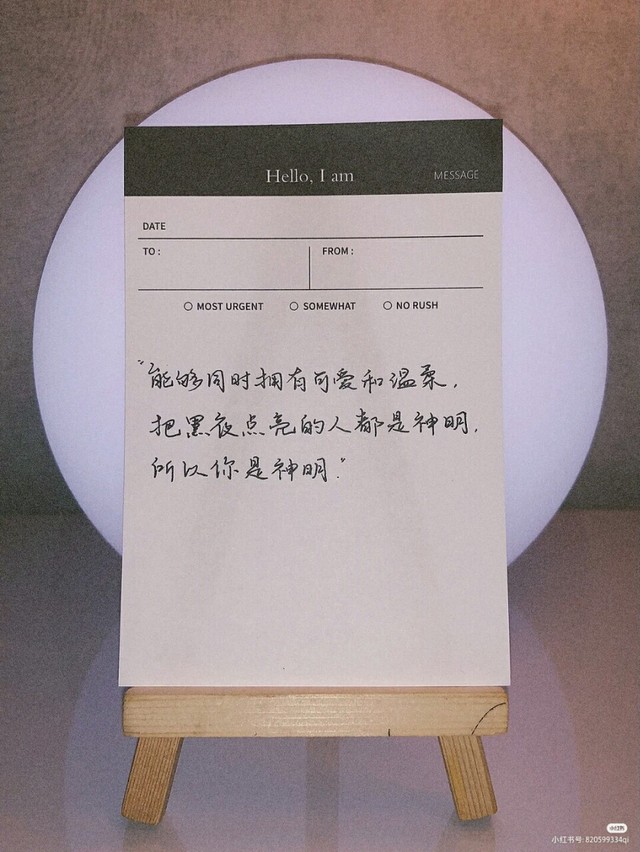 Hello, I am
MESSAGE
DATE
TO :
FROM :
○ MOST URGENT ○ SOMEWHAT ○ NO RUSH
"能够同时拥有可爱和温柔,
把黑夜点亮的人都是神明,
所以你是神明."
小红书
小红书号: 820599334qi